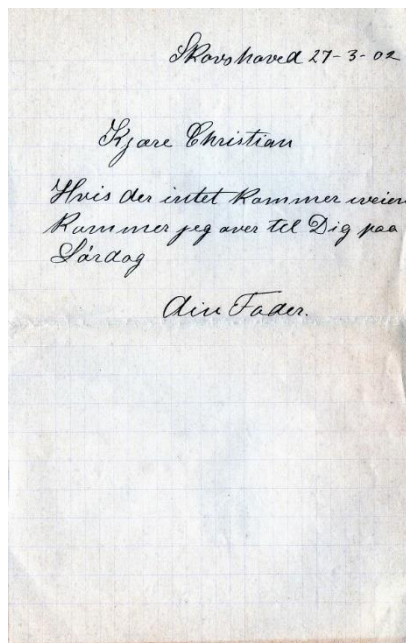 Skovshoved 27-3-02
Kjære Christian
Hvis der intet kommer iveien
kommer jeg over til Dig paa
Lördag
din Fader.